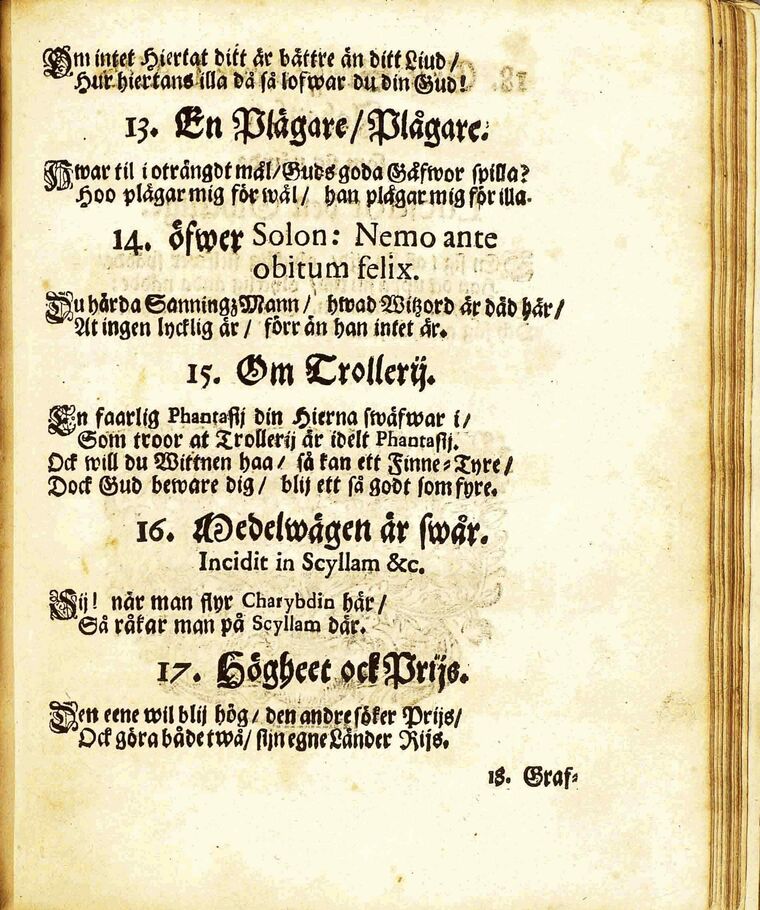 Om intet Hiertat ditt är bättre än ditt Liud /
Hur hiertans illa då så lofwar du din Gud!
13. En Plägare / Plågare.
Hwar til i oträngdt mål / Guds goda Gåfwor spilla?
Hoo plägar mig för wäl / han plågar mig för illa.
14. öfwer Solon: Nemo ante
obitum felix.
Du hårda Sannings Mann / hwad Witzord är däd här /
At ingen lycklig är / förr än han intet är.
15. Om Trollerij.
En faarlig Phantasij din Hierna swäfwar i /
Som troor at Trollerij är idelt Phantasij.
Ock will du Wittnen haa / så kan ett Finne-Tyre /
Dock Gud beware dig / blij ett så godt som fyre.
16. Medelwägen är swår.
Incidit in Scyllam &c.
Sij! när man flyr Charybdin här /
Så råkar man på Scyllam där.
17. Högheet ock Prijs.
Den eene wil blij hög / den andre söker Prijs /
Ock göra både twå / sijn egne Länder Rijs.
18. Graf-